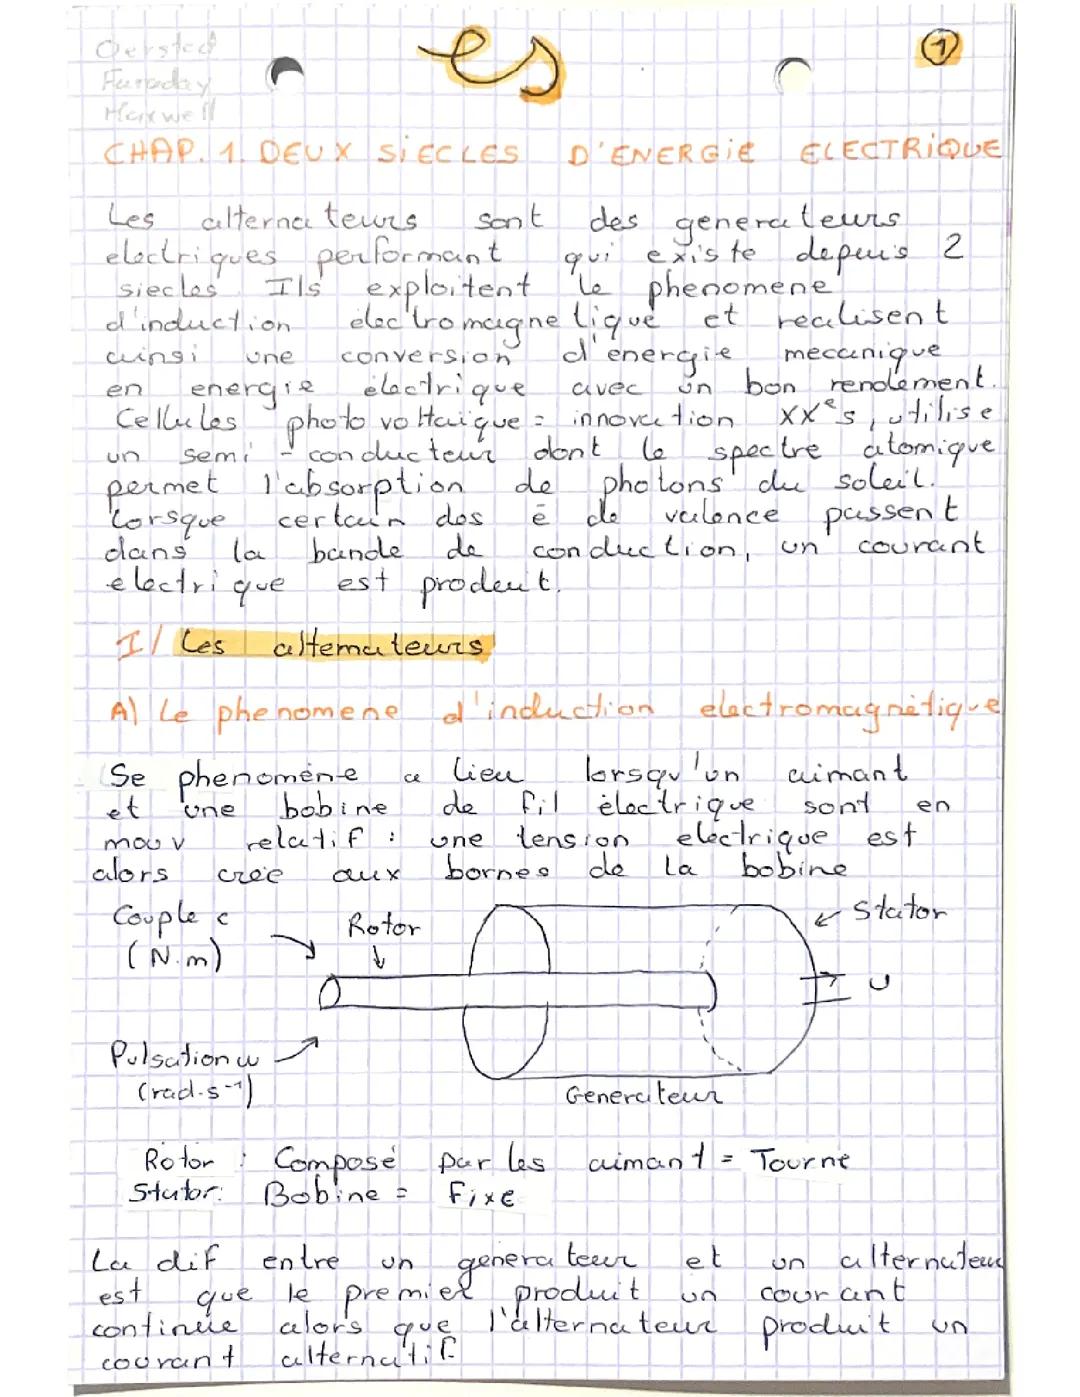 Oersted
Faraday
Maxwell
es
1
CHAP. 1. DEUX SiECLES D'ENERGiE ELECTRiQUE
Les alternateurs sont des generateurs
electriques performant qui existe depuis 2
siecles. Ils exploitent le phenomene
d'induction électromagnetique et realisent
ainsi une conversion d'energie mecanique
en energie électrique avec un bon rendement.
Cellules photovoltaïque = innovation XXe s, utilise
un semi-conducteur dont le spectre atomique
permet l'absorption de photons du soleil.
Lorsque certain des é de valence passent
dans la bande de conduction, un courant
electrique est produit.
I/ Les alternateurs
A) Le phenomene d'induction electromagnétique
Se phenoméne a lieu lorsqu'un aimant
et une bobine de fil électrique sont en
mouv relatif : une tension electrique est
alors crée aux bornes de la bobine
Couple c
(N.m)
Rotor
Stator
U
Pulsation ω
(rad.s⁻¹)
Generateur
Rotor : Composé par les aimant = Tourne
Stator: Bobine = Fixe
La dif entre un generateur et un alternateur
est que le premier produit un courant
continue alors que l'alternateur produit un
courant alternatif.